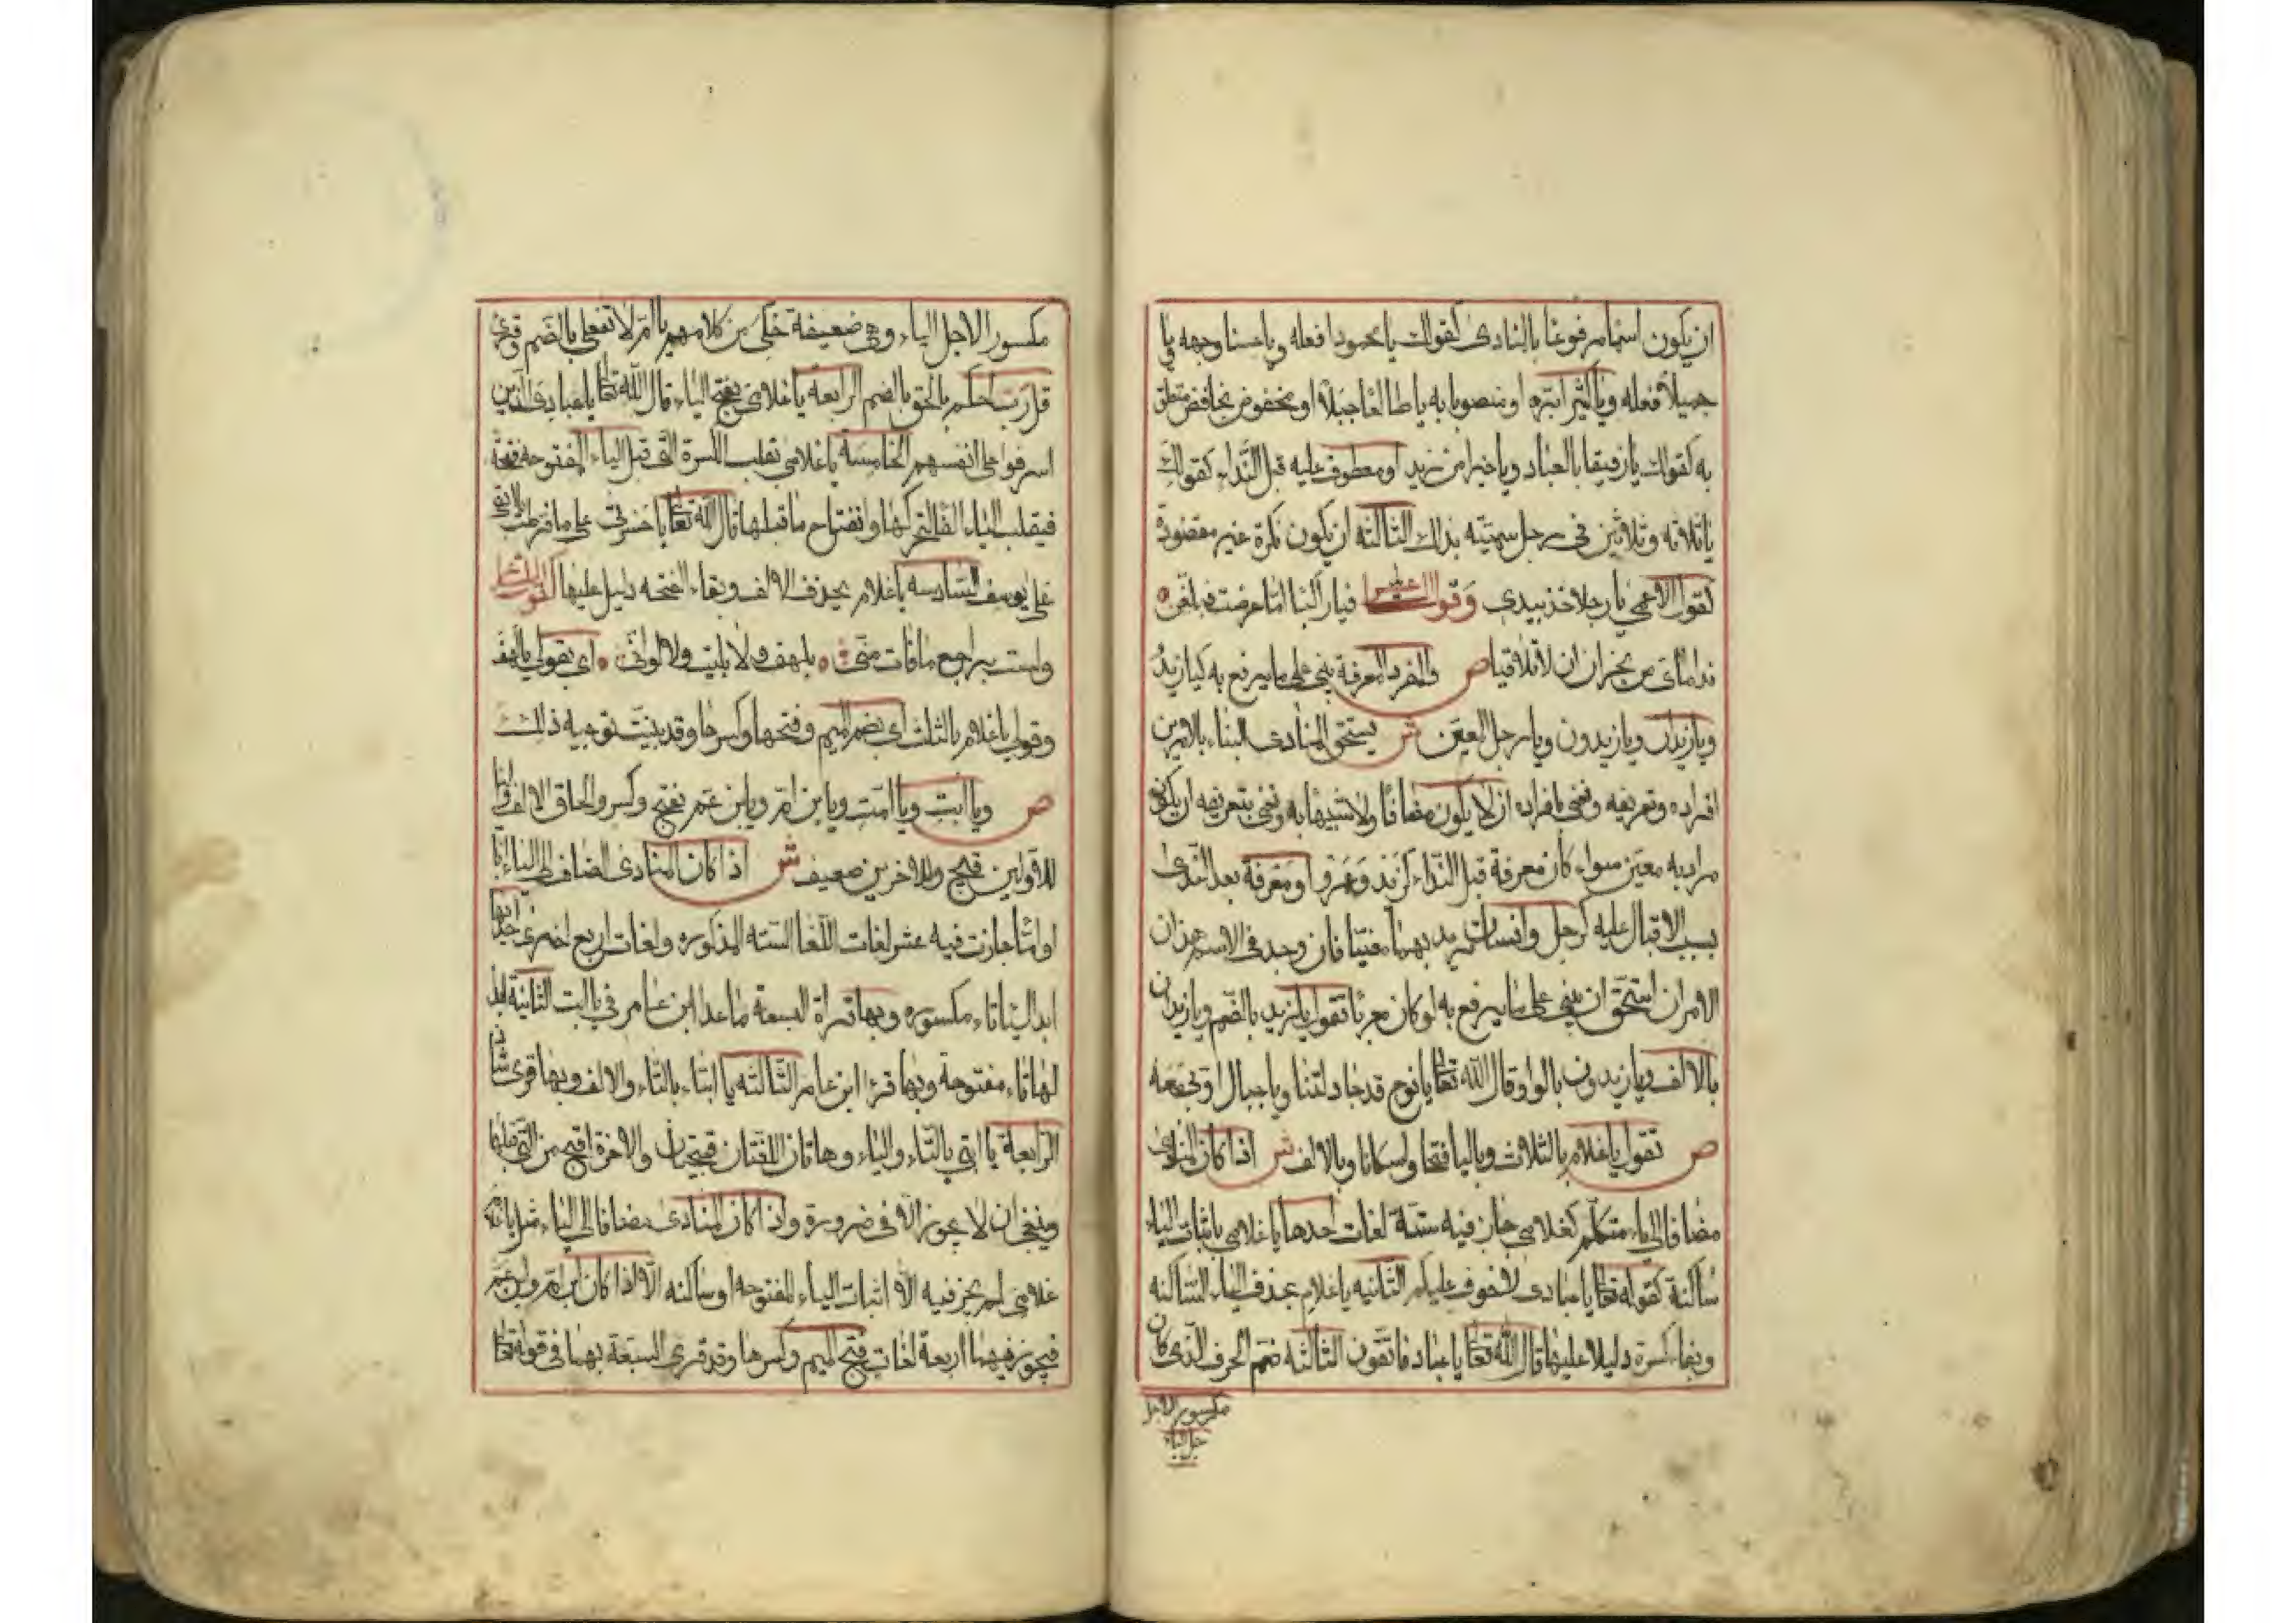 ان يكون اسما مرفوعا بالمنادى كقولك يا محمودا فعله ويا حسنا وجهه ويا
جميلا فعله ويا كثيرا بره او منصوبا به يا طالعا جبلا او مخفوض بخافض متعلق
به كقولك يا رفيقا بالعباد ويا خيرا من زيد او معطوف عليه قبل النداء كقولك
يا ثلاثه وثلاثين في رجل سميته بذلك الثالثه ان يكون نكرة غير مقصودة
كقول الاعمى يا رجلا خذ بيدي وقول الشاعر فيا راكبا اما عرضت فبلغن
نداماى من نجران ان لا تلاقيا ص والمفرد المعرفة يبنى على ما يرفع به كيا زيد
ويا زيدان ويا زيدون ويا رجل لمعين ش يستحق المنادى البناء بالامرين
افراده وتعريفه ونعنى بافراده ان لا يكون مضافا ولا شبيها به ونعنى بتعريفه ان يكون
مراد به معين سواء كان معرفة قبل النداء كزيد وعمرو او معرفة بعد الندى
بسبب الاقبال عليه كرجل وانسان تريد بهما معينا فان وجد في الاسم هذان
الامران استحق ان يبنى على ما يرفع به لو كان معربا تقول يا زيد بالضم ويا زيدان
بالالف ويا زيدون بالواو قال الله تعا يا نوح قد جادلتنا ويا جبال اوبى معه
ص تقول يا غلام بالثلاث وباليا فتحا واسكانا وبالالف ش اذا كان المنادى
مضافا الى ياء متكلم كغلامي جاز فيه ستة لغات احدها يا غلامي باثبات الياء
ساكنة كقوله تعا يا عبادى لا خوف عليكم الثانيه يا غلام بحذف الياء الساكنه
وبقاء كسرة دليلا عليها قال الله تعا يا عباد فاتقون الثالثه ضم الحرف الذى كان
مكسور الا جل الياء
مكسورا لاجل الياء وهى ضعيفة حكى من كلامهم يا ام لا تفعلى بالضم وقرئ
قل رب احكم بالحق بالضم الرابعة يا غلامي بفتح الياء قال الله تعا يا عبادى الذين
اسرفوا على انفسهم الخامسة يا غلامى بقلب الكسرة التى قبل الياء المفتوحه فتحة
فيقلب الياء الفا لتحركها وانفتاح ما قبلها قال الله تعا يا حسرتى على ما فرطت
على يوسف السادسه يا غلام بحذف الالف وبقاء الفتحه دليل عليها كقول الشاعر
ولست براجع ما فات منى بلهف ولا بليت ولا لوانى اى بقولى يا لهف
وقولى يا غلام بالثلث اى بضم الميم وفتحها وكسرها وقد بينت توجيه ذلك
ص ويا ابت ويا امت ويا بن ام ويا بن عم بفتح وكسر والحاق الالف واليا
للاولين قبيح وللاخرين ضعيف ش اذا كان المنادى المضاف الى الياء ابا
او اما جازت فيه عشر لغات اللغا السته المذكوره ولغات اربع اخرى احدها
ابدال اليا تاء مكسوره وبها قراة السبعة ما عدا ابن عامر في يا ابت الثانية ابد
لها تاء مفتوحة وبها قرا ابن عامر الثالثه يا ابتاء بالتاء والالف وبها قرى شاذ
الرابعة يا ابتى بالتاء والياء وهاتان اللغتان قبيحتان والاخرة اقبح من التى قبلها
وينبغى ان لا يجوز الا فى ضرورة واذا كان المنادى مضافا الى الياء مثل يا غلام
غلامى لم يجز فيه الا اثبات الياء المفتوحه او ساكنه الا اذا كان ابن ام وابن عم
فيجوز فيهما اربعة لغات فتح الميم وكسرها وقد قرى السبعة بهما فى قوله تعا